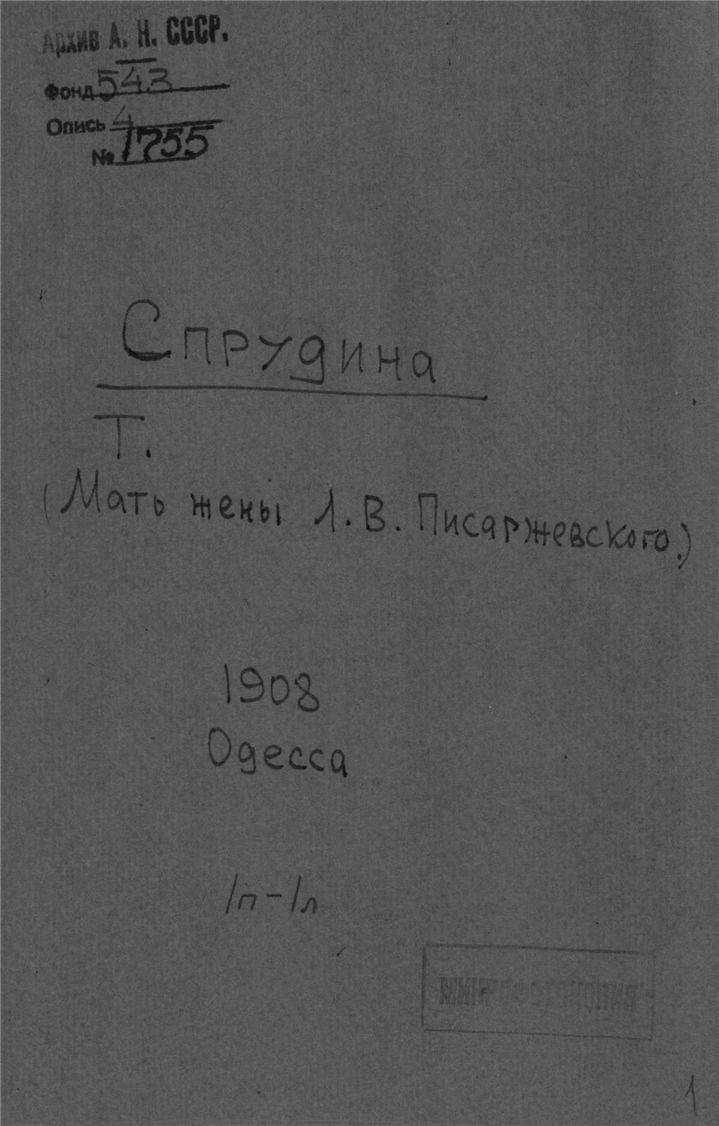 Архив А. Н. СССР.
Фонд 543
Опись 4
№ 1755
Спрудина
Т.
(Мать жены Л. В. Писаржевского.)
1908
Одесса
1п-1л
1